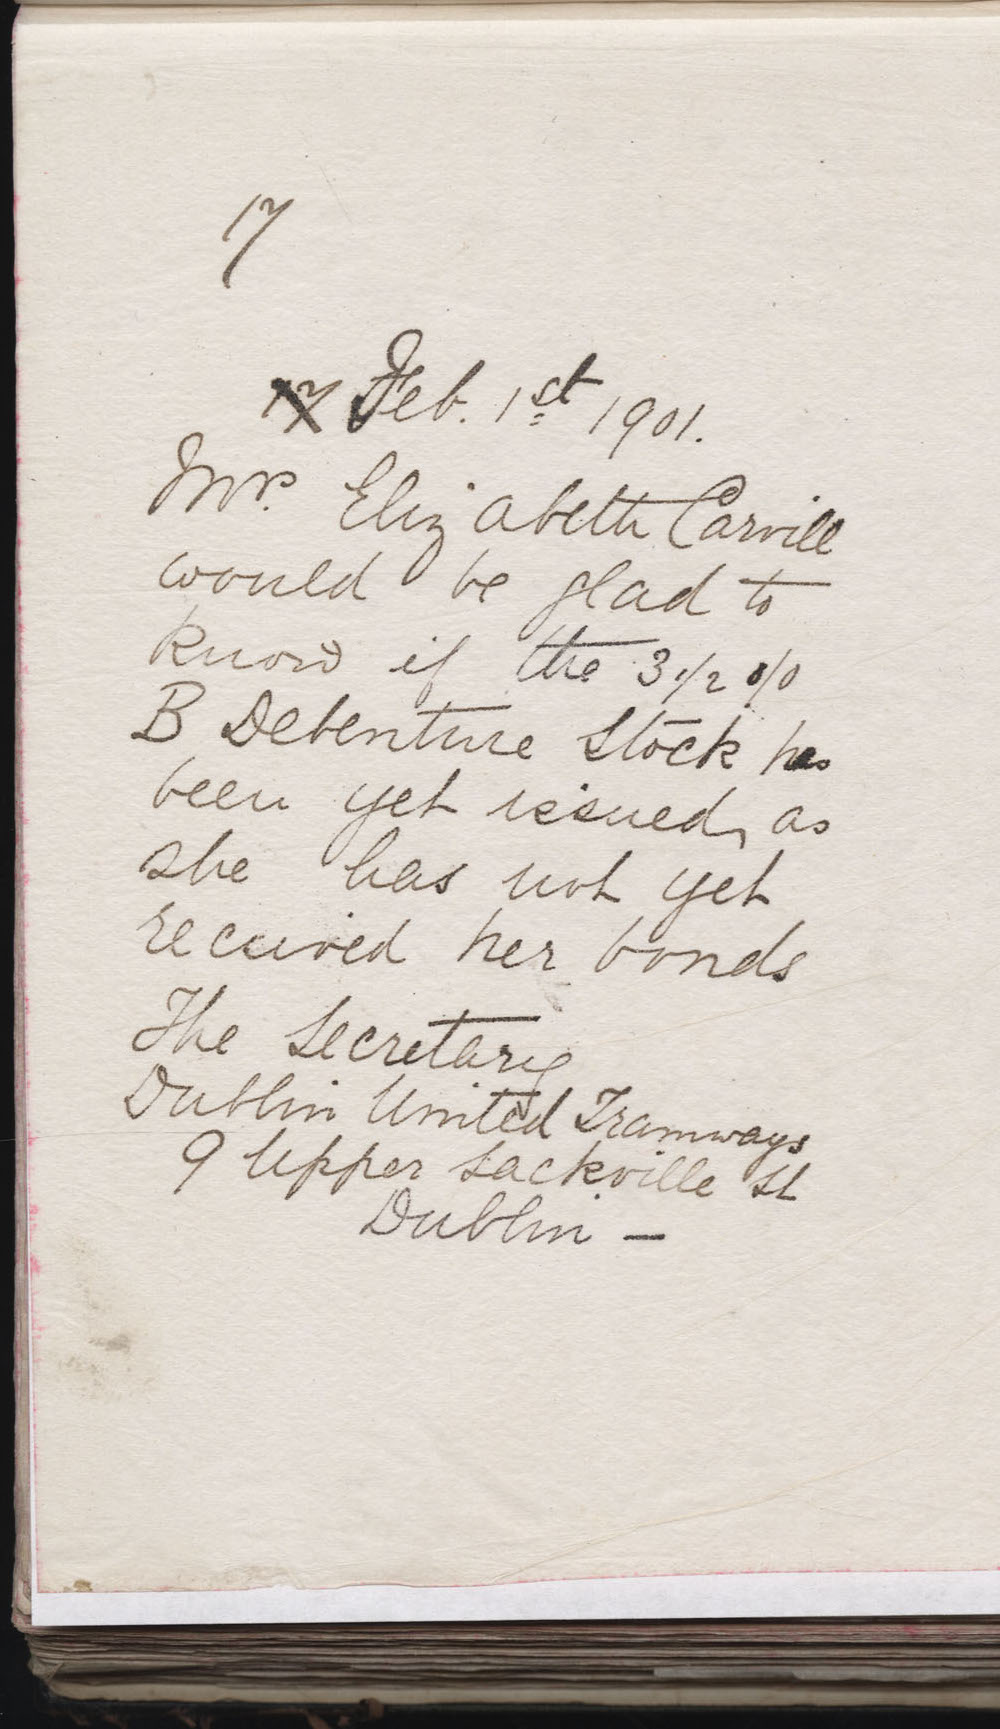 17
17 Feb. 1st 1901.
Mrs. Elizabeth Carvill
would be glad to
know if the 3 1/2 o/o
B Debenture Stock has
been yet issued, as
she has not yet
received her bonds
The Secretary
Dublin United Tramways
9 Upper Sackville St
Dublin —